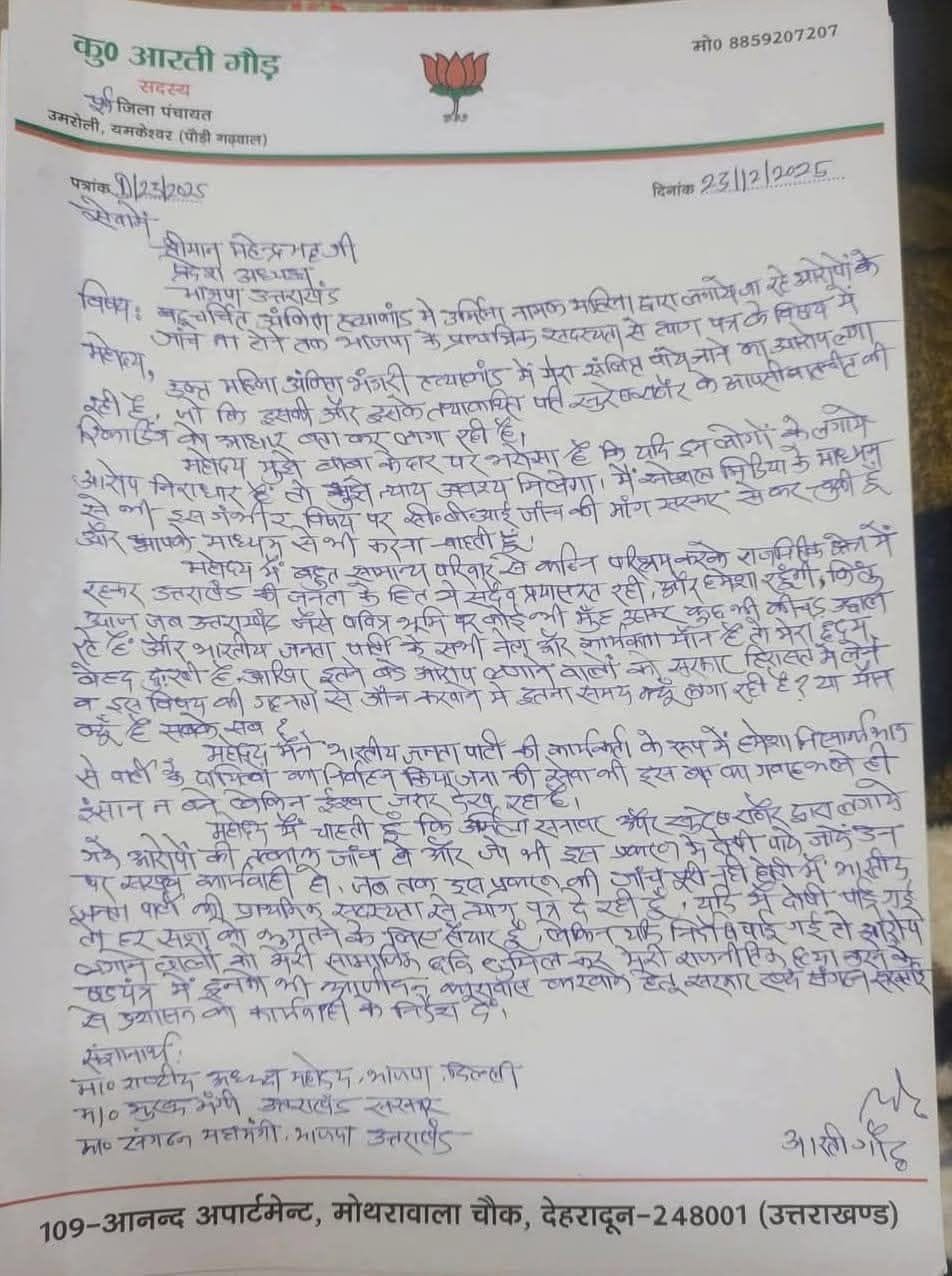 कु० आरती गौड़
सदस्य
पूर्व जिला पंचायत
उमरोली, यमकेश्वर (पौड़ी गढ़वाल)
मो० 8859207207
पत्रांक D/23/2025
दिनांक 23/12/2025
सेवामें
श्रीमान महेन्द्र भट्ट जी
प्रदेश अध्यक्ष
भाजपा उत्तराखंड
विषय: बहुचर्चित अंकिता हत्याकांड में उर्मिला नामक महिला द्वारा लगाये जा रहे आरोपों के
जांच ना होने तक भाजपा के प्राथमिक सदस्यता से त्याग पत्र के विषय में
महोदय,
उक्त महिला अंकिता भंडारी हत्याकांड में मेरा संलिप्त पाये जाने का आरोप लगा
रही है, जो कि इसकी और इसके तथाकथित पति सुरेश राठौर के आपसी बातचीत की
रिकॉर्डिंग को आधार बना कर लगा रही है।
महोदय मुझे बाबा केदार पर भरोसा है कि यदि इन लोगों के लगाये
आरोप निराधार हैं तो मुझे न्याय अवश्य मिलेगा। मैं सोशल मिडिया के माध्यम
से भी इस गंभीर विषय पर सी०बी०आई जाँच की मांग सरकार से कर चुकी हूँ
और आपके माध्यम से भी करना चाहती हूँ।
महोदय मैं बहुत सामान्य परिवार से कठिन परिश्रम करके राजनितिक क्षेत्र में
रहकर उत्तराखंड की जनता के हित में सदैव प्रयासरत रही, और हमेशा रहूँगी, किंतु
आज जब उत्तराखंड जैसे पवित्र भूमि पर कोई भी मुँह उठाकर कुछ भी कीचड़ उछाल
रहे हैं और भारतीय जनता पार्टी के सभी नेता और कार्यकर्ता मौन हैं तो मेरा हृदय
बेहद दुःखी है, आखिर इतने बड़े आरोप लगाने वालों को सरकार हिरासत में लेने
व इस विषय की गहनता से जाँच करवाने में इतना समय क्यूँ लगा रही है? या मौन
क्यूँ है सबके सब?
महोदय मैंने भारतीय जनता पार्टी की कार्यकर्ता के रूप में हमेशा निस्वार्थ भाव
से पार्टी के दायित्वों का निर्वाहन किया जनता की सेवा की इस बात का गवाह भले ही
इंसान न बने लेकिन ईश्वर जरूर देख रहा है।
महोदय मैं चाहती हूँ कि उर्मिला सनावर और सुरेश राठौर द्वारा लगाये
गये आरोपों की तत्काल जांच हो और जो भी इस प्रकरण के दोषी पाये जाके उन
पर सख्त कार्यवाही हो, जब तक इस प्रकरण की जाँच पूरी नहीं होती मैं भारतीय
जनता पार्टी की प्राथमिक सदस्यता से त्याग पत्र दे रही हूँ, यदि मैं दोषी पाई गई
तो हर सजा को भुगतने के लिए तैयार हूँ, लेकिन यदि निर्दोष पाई गई तो आरोप
लगाने वालों को मेरी सामाजिक छवि धूमिल कर मेरी राजनीतिक हत्या करने के
षडयंत्र में इनको भी आजीवन कारावास करवाने हेतु सरकार एवं संगठन
से प्रशासन को कार्यवाही के निर्देश दें।
संज्ञानार्थ:
मा० राष्ट्रीय अध्यक्ष महोदय, भाजपा, दिल्ली
मा० मुख्य मंत्री उत्तराखंड सरकार
मा० संगठन महामंत्री, भाजपा उत्तराखंड
आरती गौड़
109-आनन्द अपार्टमेन्ट, मोथरावाला चौक, देहरादून-248001 (उत्तराखण्ड)